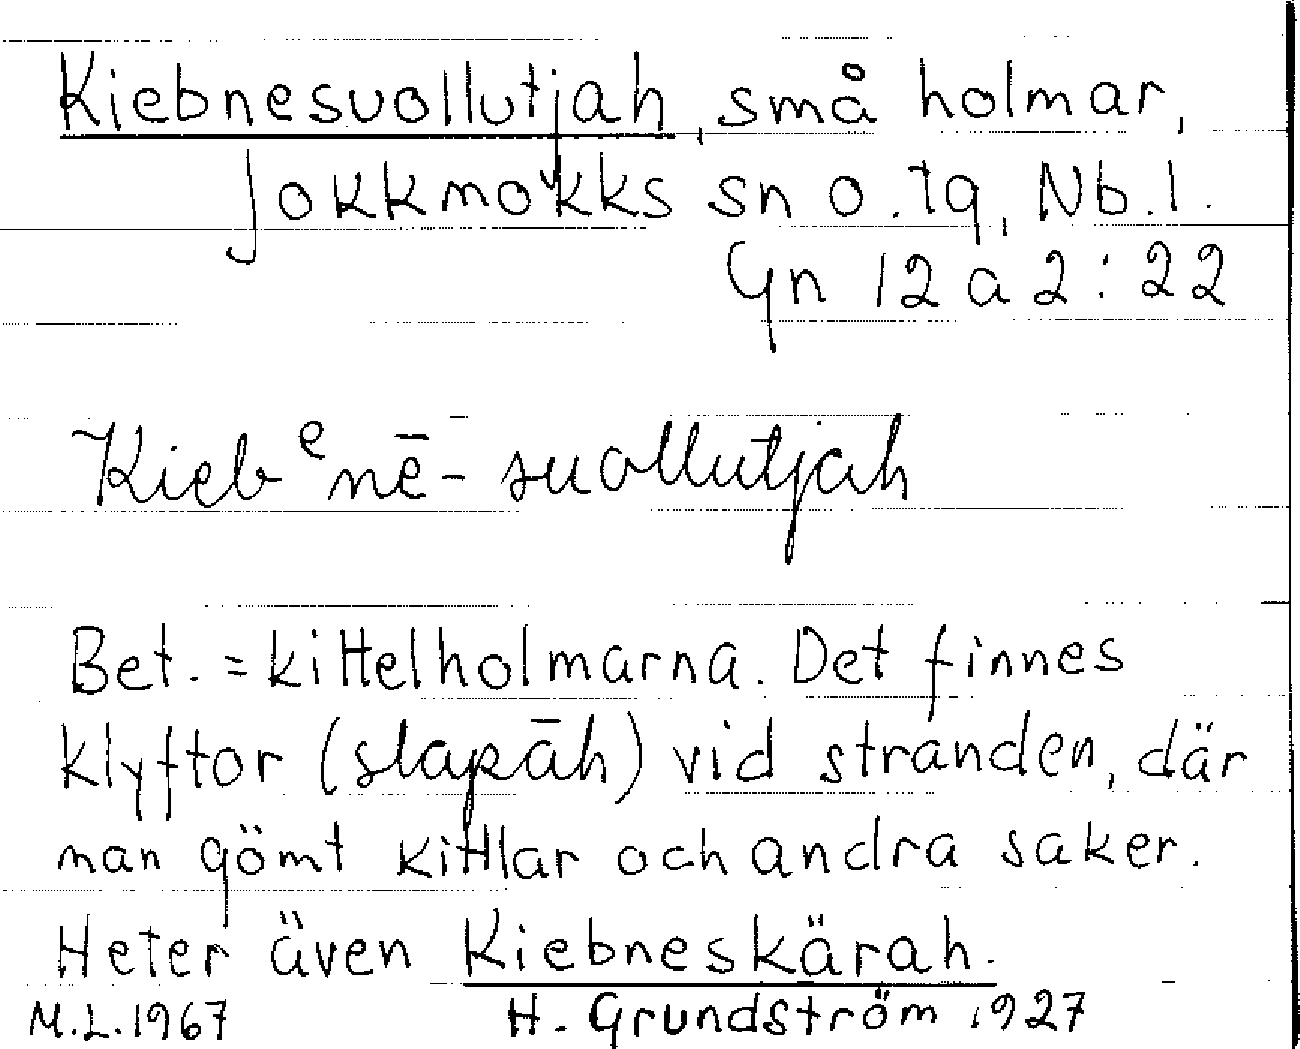 Kiebnesuollutjah, små holmar,
Jokkmokks sn o. tg, Nb.l.
Gn 12 a 2 : 22
Kiebᵉnē- suollutjah
Bet. = kittelholmarna. Det finnes
klyftor (slapāh) vid stranden, där
man gömt kittlar och andra saker.
Heter även Kiebneskärah.
M.L.1967 H. Grundström 1927